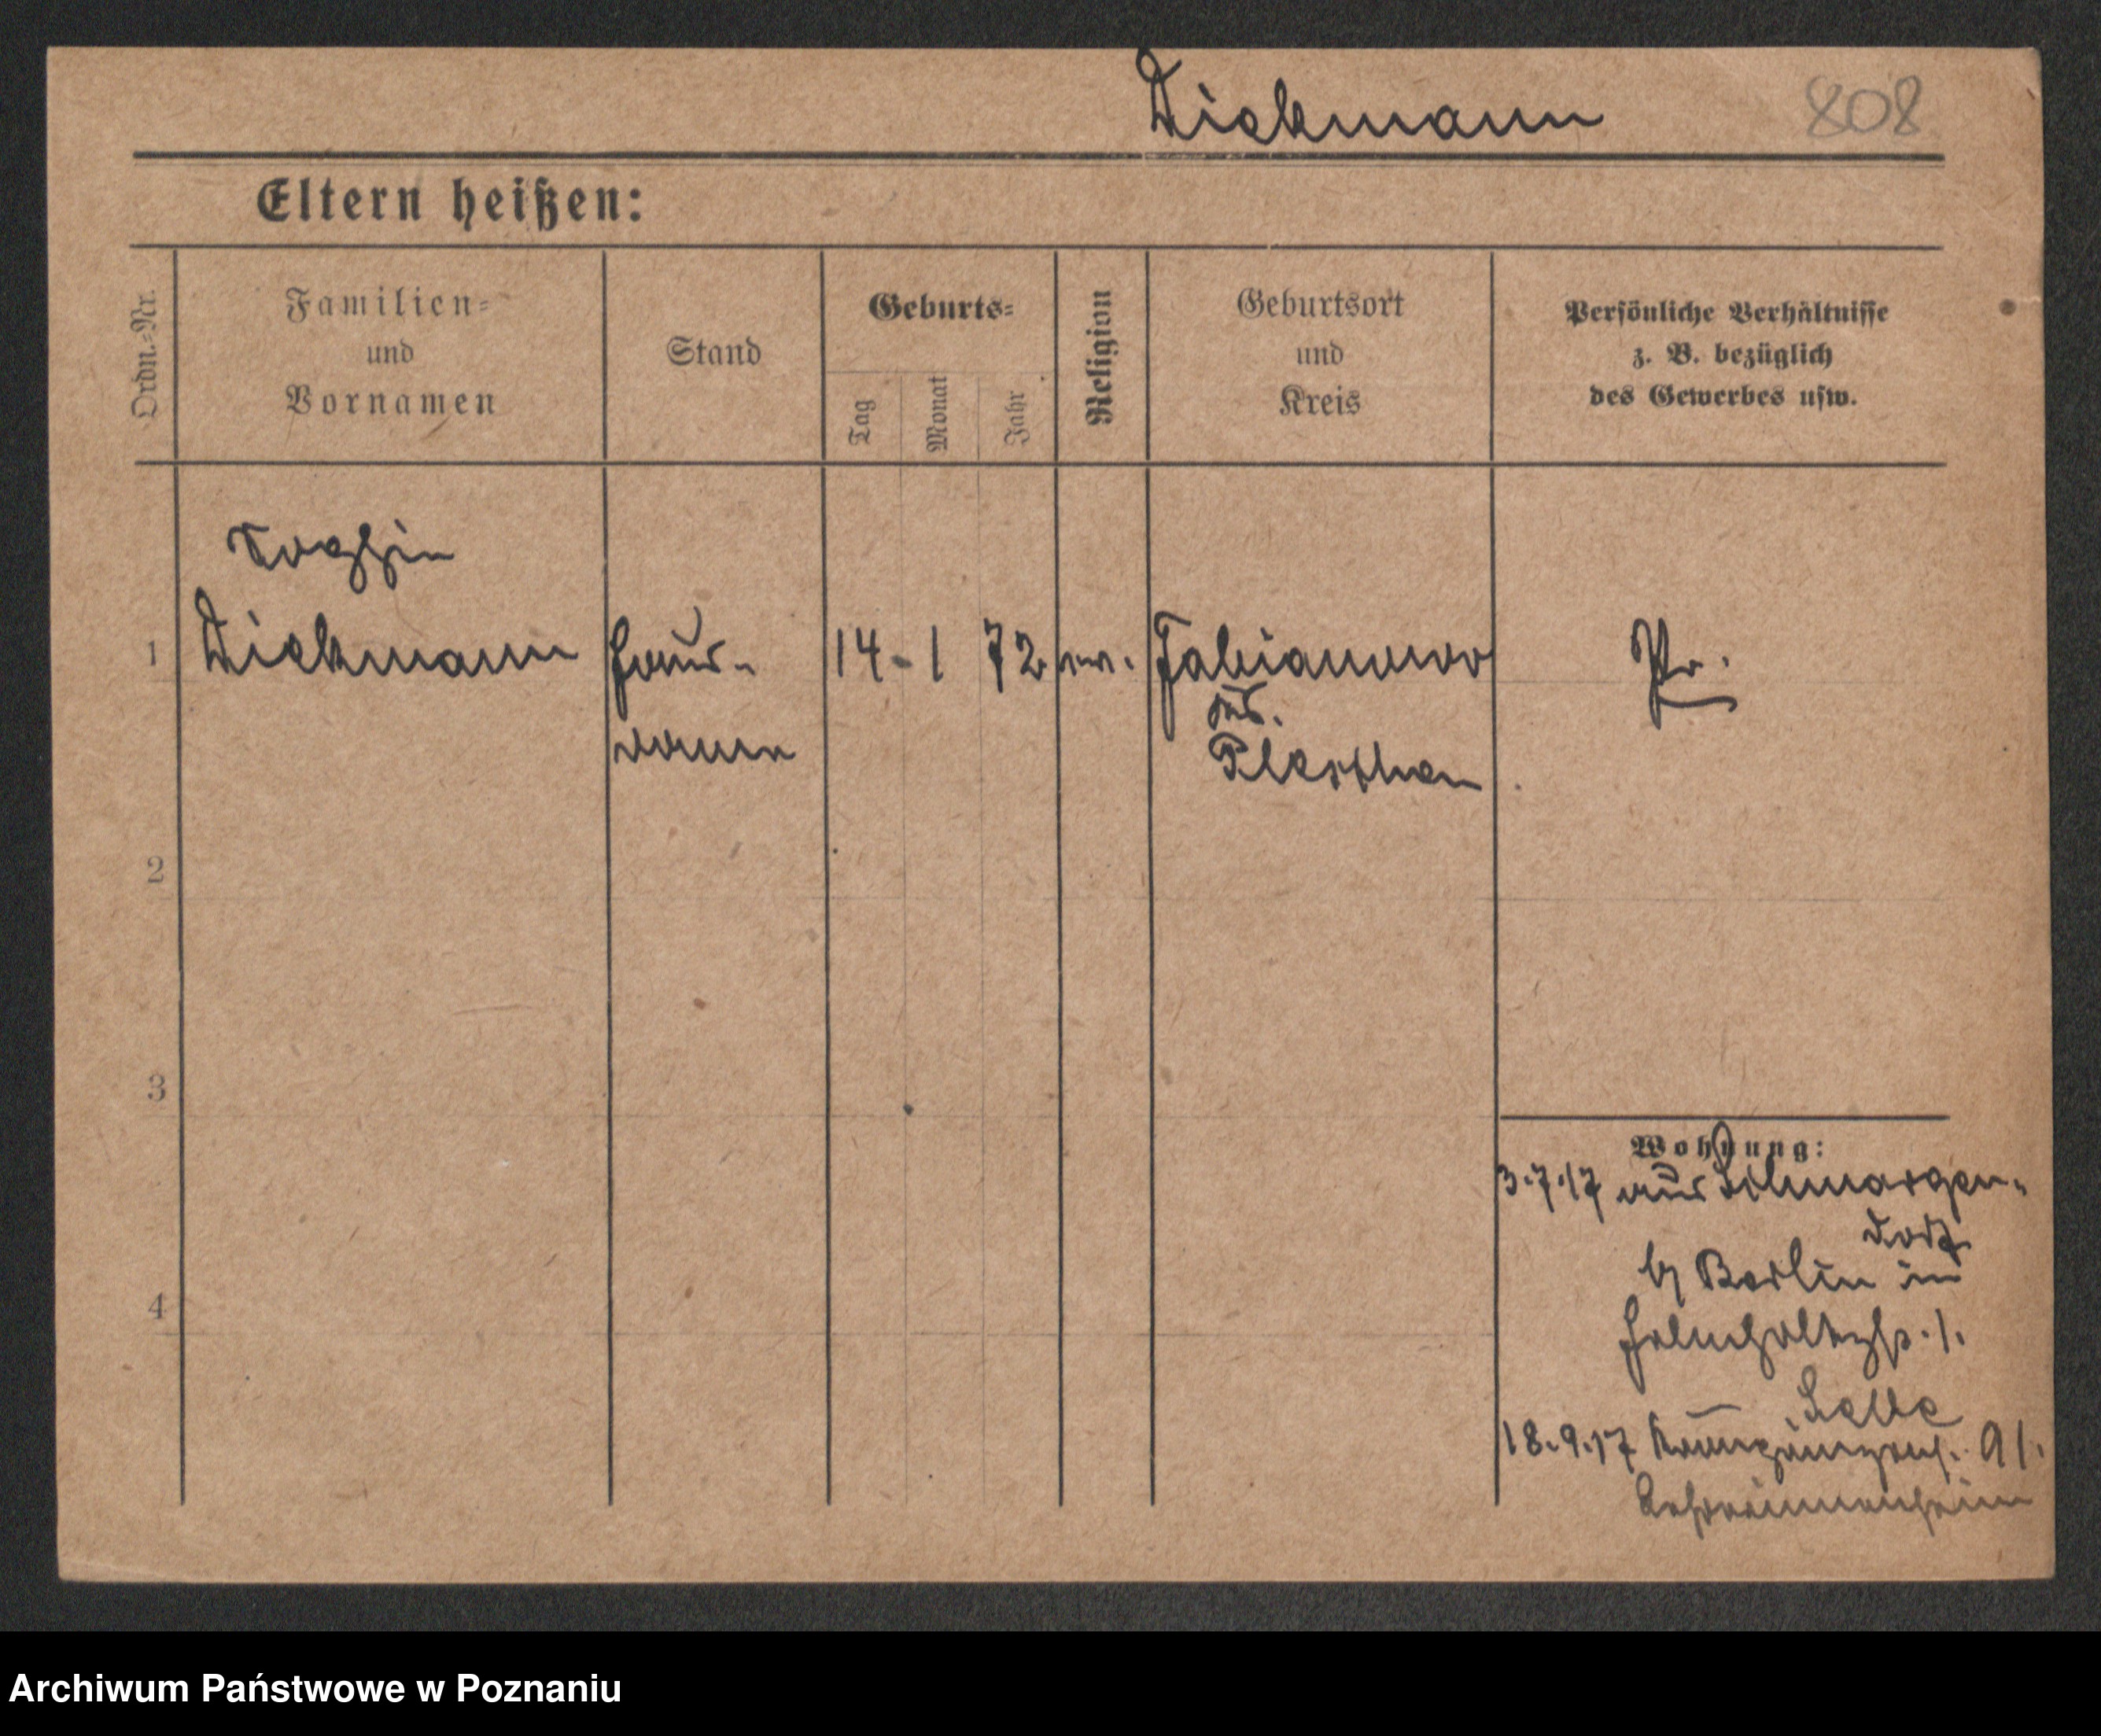 Diekmann 808
Eltern heißen:
Ordn.-Nr.
Familien-
und
Vornamen
Stand
Geburts-
Tag
Monat
Jahr
Religion
Geburtsort
und
Kreis
Persönliche Verhältnisse
z. B. bezüglich
des Gewerbes usw.
Sophie
1 Diekmann Haus- 14 - 1 72 ev. Fabianowo Pr.
dame
Kr.
Pleschen
2
3
4
Wohnung:
3.7.17 aus Schmargen-
dorf
b/ Berlin in
Helmholtzstr. 1.
18.9.17 91.
Lehrerinnenheim
Archiwum Państwowe w Poznaniu